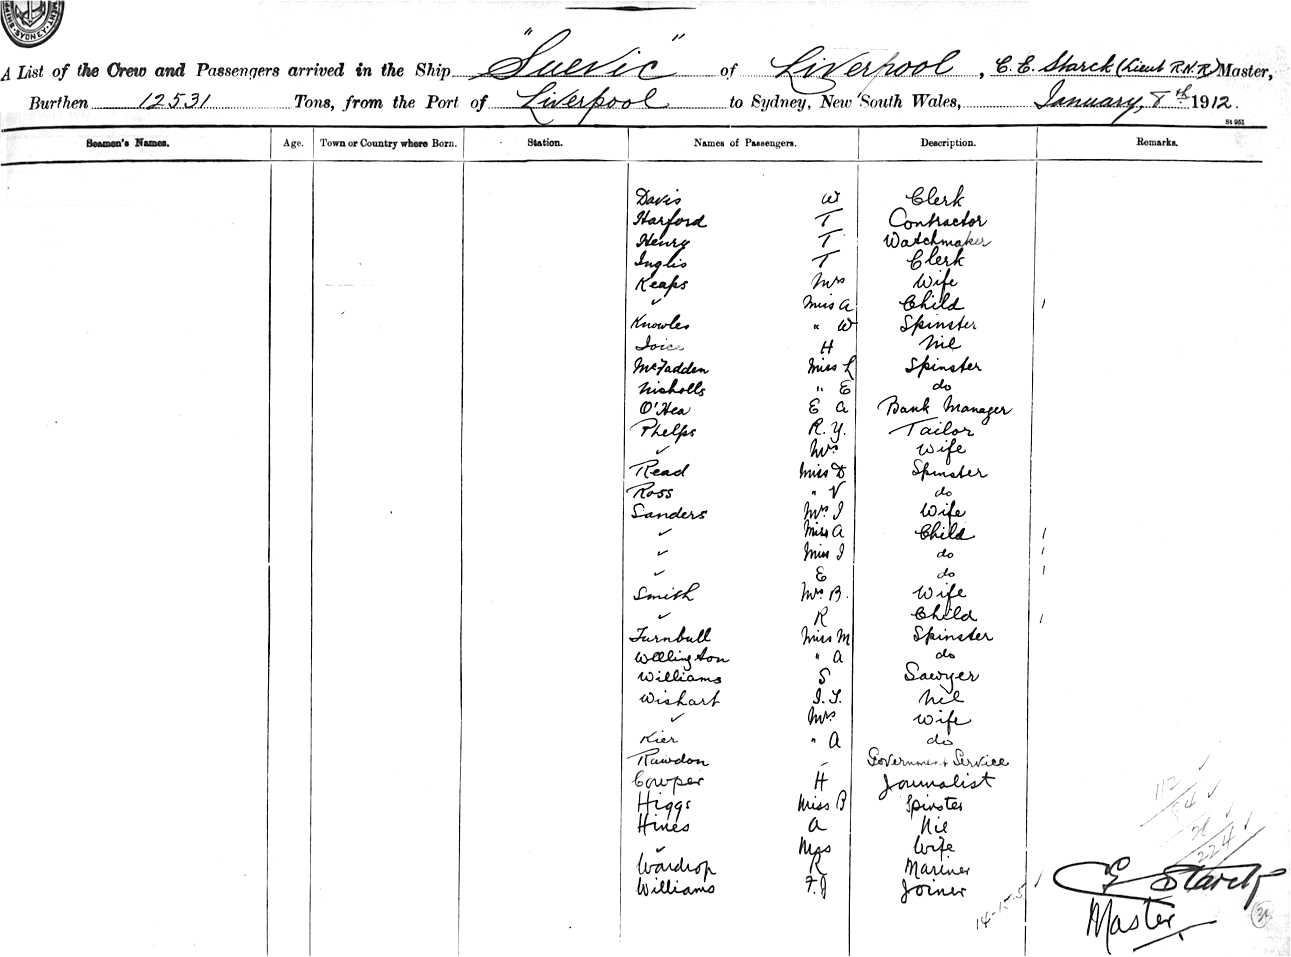 SYDNEY
A List of the Crew and Passengers arrived in the Ship "Suevic" of Liverpool, C. E. Starck (Lieut R.N.R) Master,
Burthen 12531 Tons, from the Port of Liverpool to Sydney, New South Wales, January, 8th 1912.
St 951
Seamen's Names. Age. Town or Country where Born. Station. Names of Passengers. Description. Remarks.
Davis W Clerk
Harford T Contractor
Henry T Watchmaker
Inglis T Clerk
Keaps Mrs Wife
✓ Miss A Child 1
Knowles " W Spinster
H Nil
McFadden Miss L Spinster
Nicholls " E do
O'Hea E A Bank Manager
Phelps R. Y. Tailor
✓ Mrs Wife
Read Miss D Spinster
Ross " V do
Sanders Mrs I Wife
✓ Miss A Child 1
✓ Miss I do 1
✓ E do 1
Smith Mrs B. Wife
✓ R Child 1
Turnbull Miss M Spinster
Wellington " A do
Williams S Sawyer
Wishart I. T. Nil
✓ Mrs Wife
Kier " A do
Rawdon - Government Service
Cowper H Journalist
Higgs Miss B Spinster
Hines A Nil
✓ Mrs Wife
Wardrop R Mariner
Williams F. J Joiner
224
C E Starck
Master